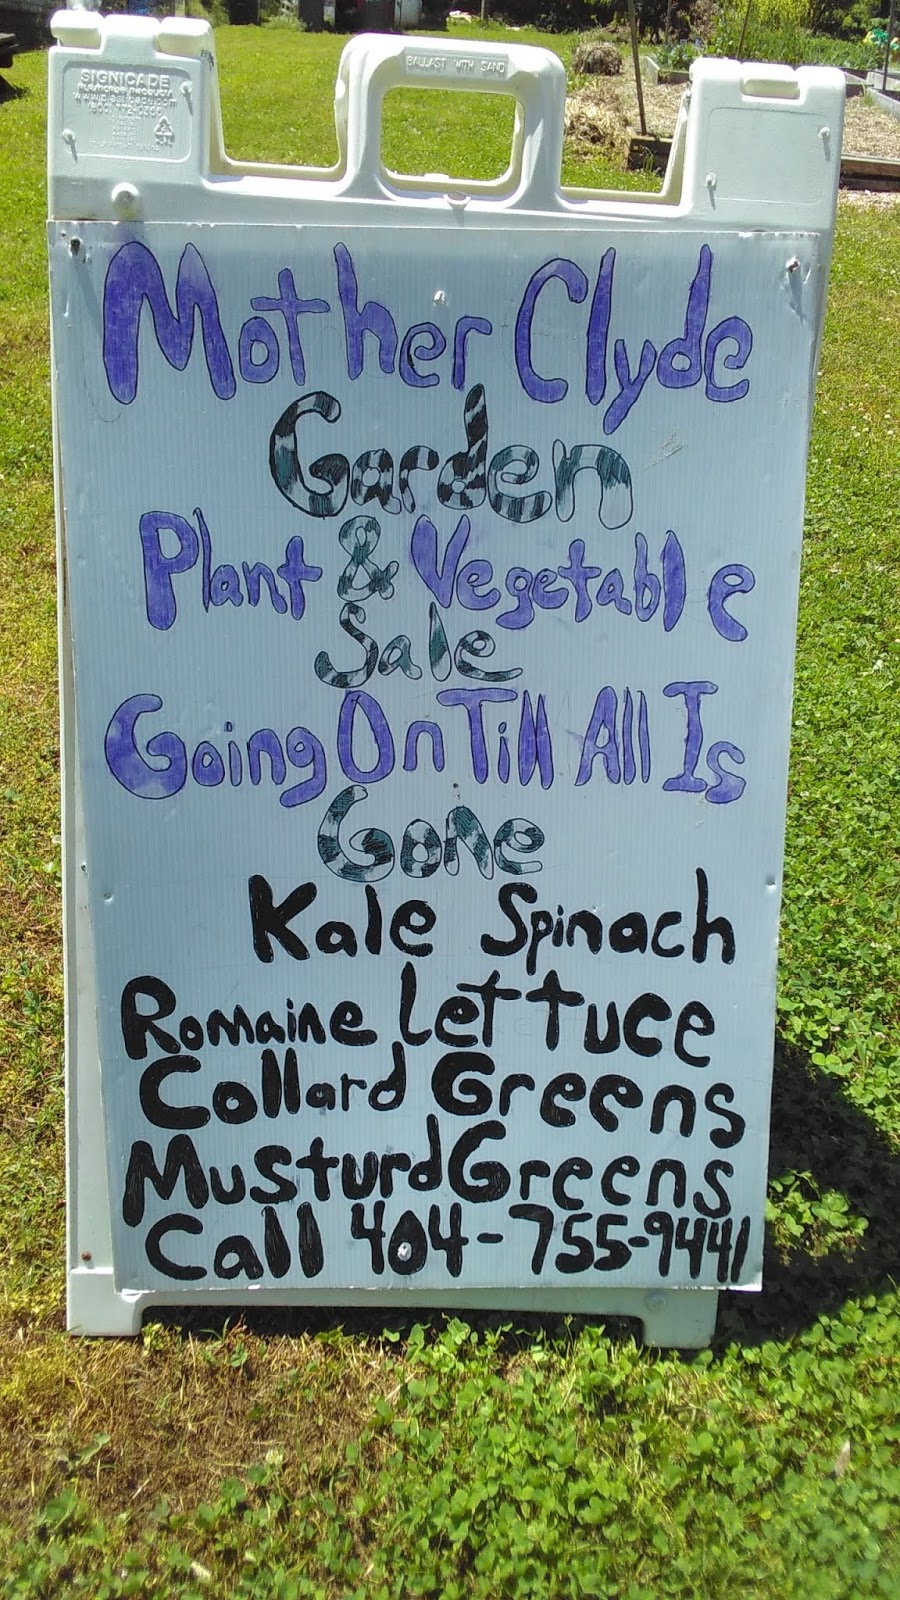 SIGNICADE
BALLAST WITH SAND
Mother Clyde
Garden
Plant & Vegetable
Sale
Going On Till All Is
Gone
Kale Spinach
Romaine Lettuce
Collard Greens
Musturd Greens
Call 404-755-9441